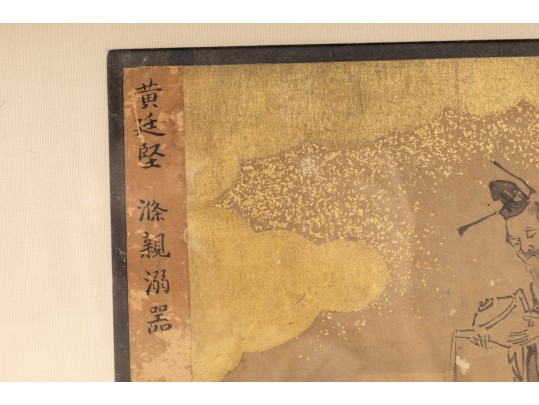 黄廷堅 滌親溺器